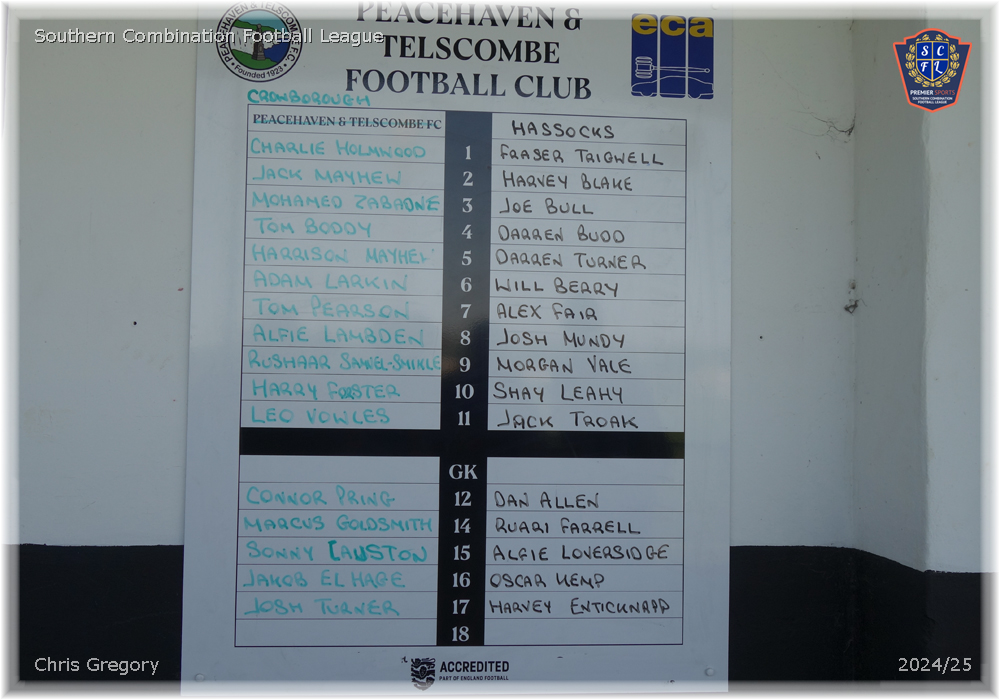 Southern Combination Football League
PEACEHAVEN & TELSCOMBE F.C.
Founded 1923
PEACEHAVEN &
TELSCOMBE
FOOTBALL CLUB
eca
SCFL
PREMIER SPORTS
SOUTHERN COMBINATION
FOOTBALL LEAGUE
CROWBOROUGH
PEACEHAVEN & TELSCOMBE FC HASSOCKS
CHARLIE HOLMWOOD 1 FRASER TRIGWELL
JACK MAYHEW 2 HARVEY BLAKE
MOHAMED ZABADNE 3 JOE BULL
TOM BODDY 4 DARREN BUDD
HARRISON MAYHEW 5 DARREN TURNER
ADAM LARKIN 6 WILL BERRY
TOM PEARSON 7 ALEX FAIR
ALFIE LAMBDEN 8 JOSH MUNDY
RUSHAAR SAMUEL-SMIKLE 9 MORGAN VALE
HARRY FORSTER 10 SHAY LEAHY
LEO VOWLES 11 JACK TROAK
GK
CONNOR PRING 12 DAN ALLEN
MARCUS GOLDSMITH 14 RUARI FARRELL
SONNY CAUSTON 15 ALFIE LOVERSIDGE
JAKOB EL HAGE 16 OSCAR KEMP
JOSH TURNER 17 HARVEY ENTICKNAPP
18
ACCREDITED
PART OF ENGLAND FOOTBALL
Chris Gregory
2024/25